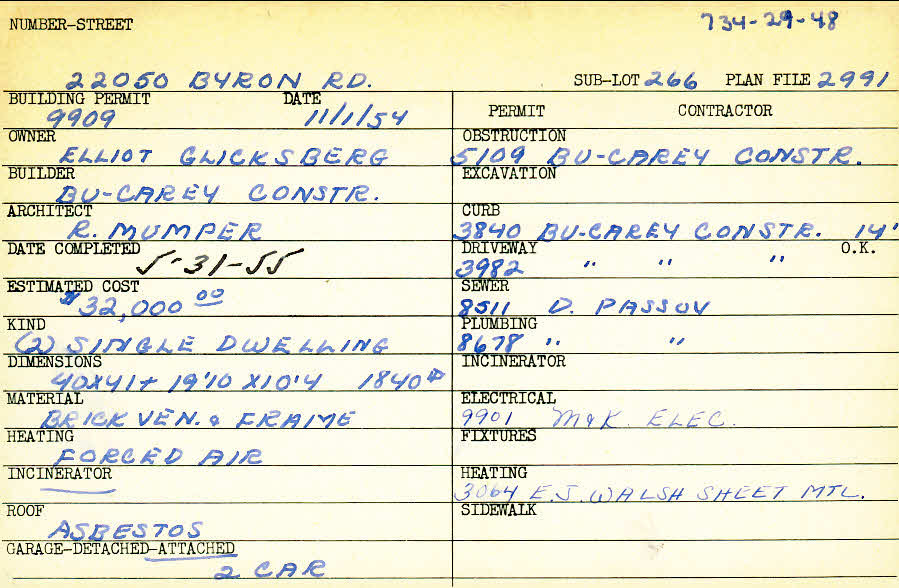 NUMBER-STREET 734-29-48
22050 BYRON RD. SUB-LOT 266 PLAN FILE 2991
BUILDING PERMIT DATE PERMIT CONTRACTOR
9909 11/1/54
OWNER OBSTRUCTION
ELLIOT GLICKSBERG 5109 BU-CAREY CONSTR.
BUILDER EXCAVATION
BU-CAREY CONSTR.
ARCHITECT CURB
R. MUMPER 3840 BU-CAREY CONSTR. 14'
DATE COMPLETED DRIVEWAY O.K.
5-31-55 3982 " " "
ESTIMATED COST SEWER
$32,000 00 8511 D. PASSOV
KIND PLUMBING
(2) SINGLE DWELLING 8678 " "
DIMENSIONS INCINERATOR
40X41+ 19'10 X10'4 1840
MATERIAL ELECTRICAL
BRICK VEN. & FRAME 9901 M&K. ELEC.
HEATING FIXTURES
FORCED AIR
INCINERATOR HEATING
3064 E.J. WALSH SHEET MTL.
ROOF SIDEWALK
ASBESTOS
GARAGE-DETACHED-ATTACHED
2 CAR